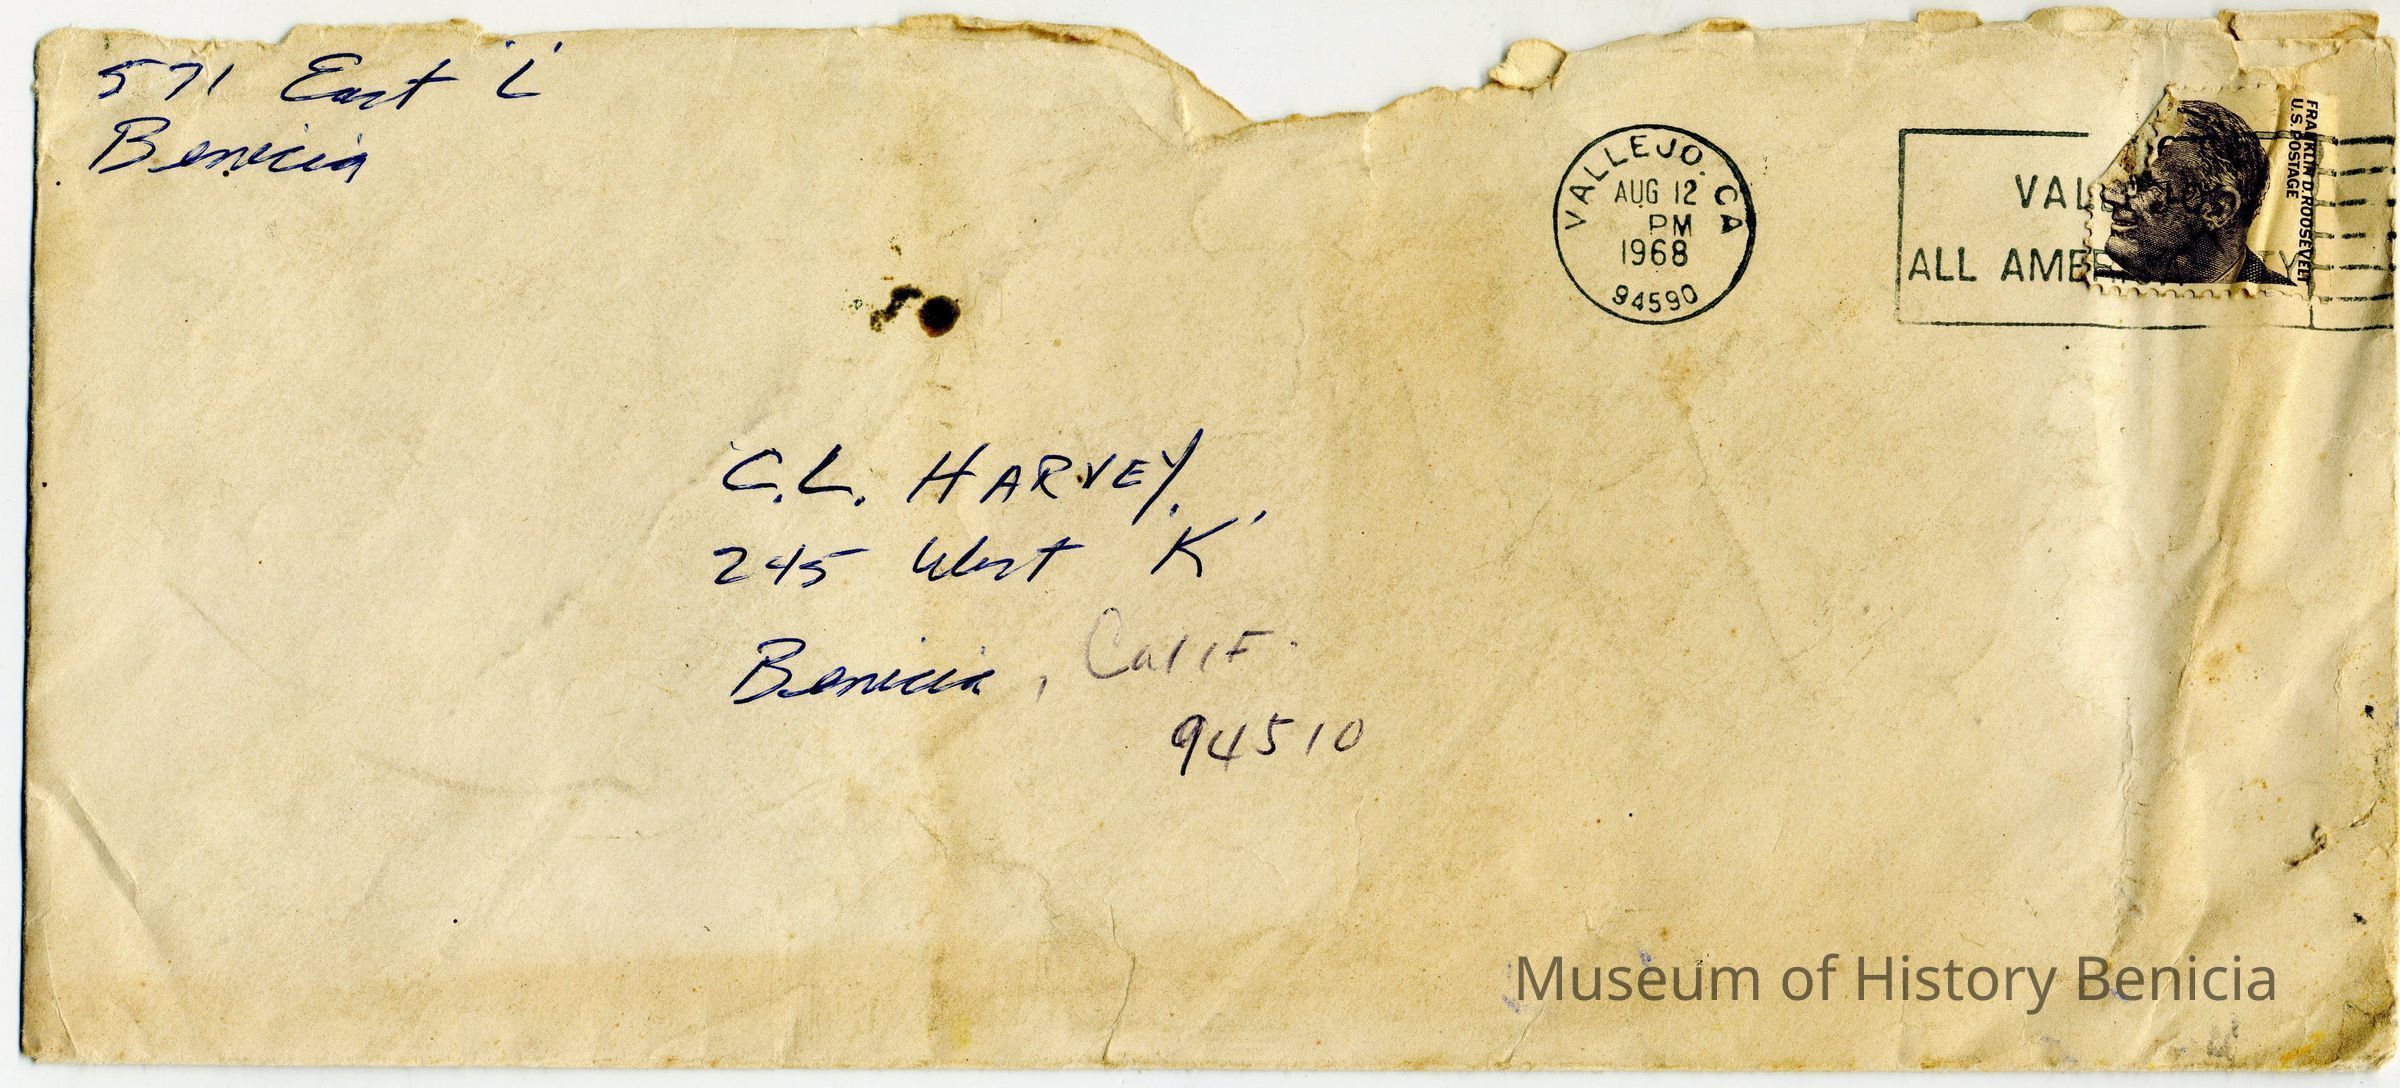 571 East 'L'
Benicia
VALLEJO, CA
AUG 12
PM
1968
94590
VALLEJO
ALL AMERICA CITY
FRANKLIN D. ROOSEVELT
U.S. POSTAGE
C.L. HARVEY
245 West 'K'
Benicia, Calif.
94510
Museum of History Benicia